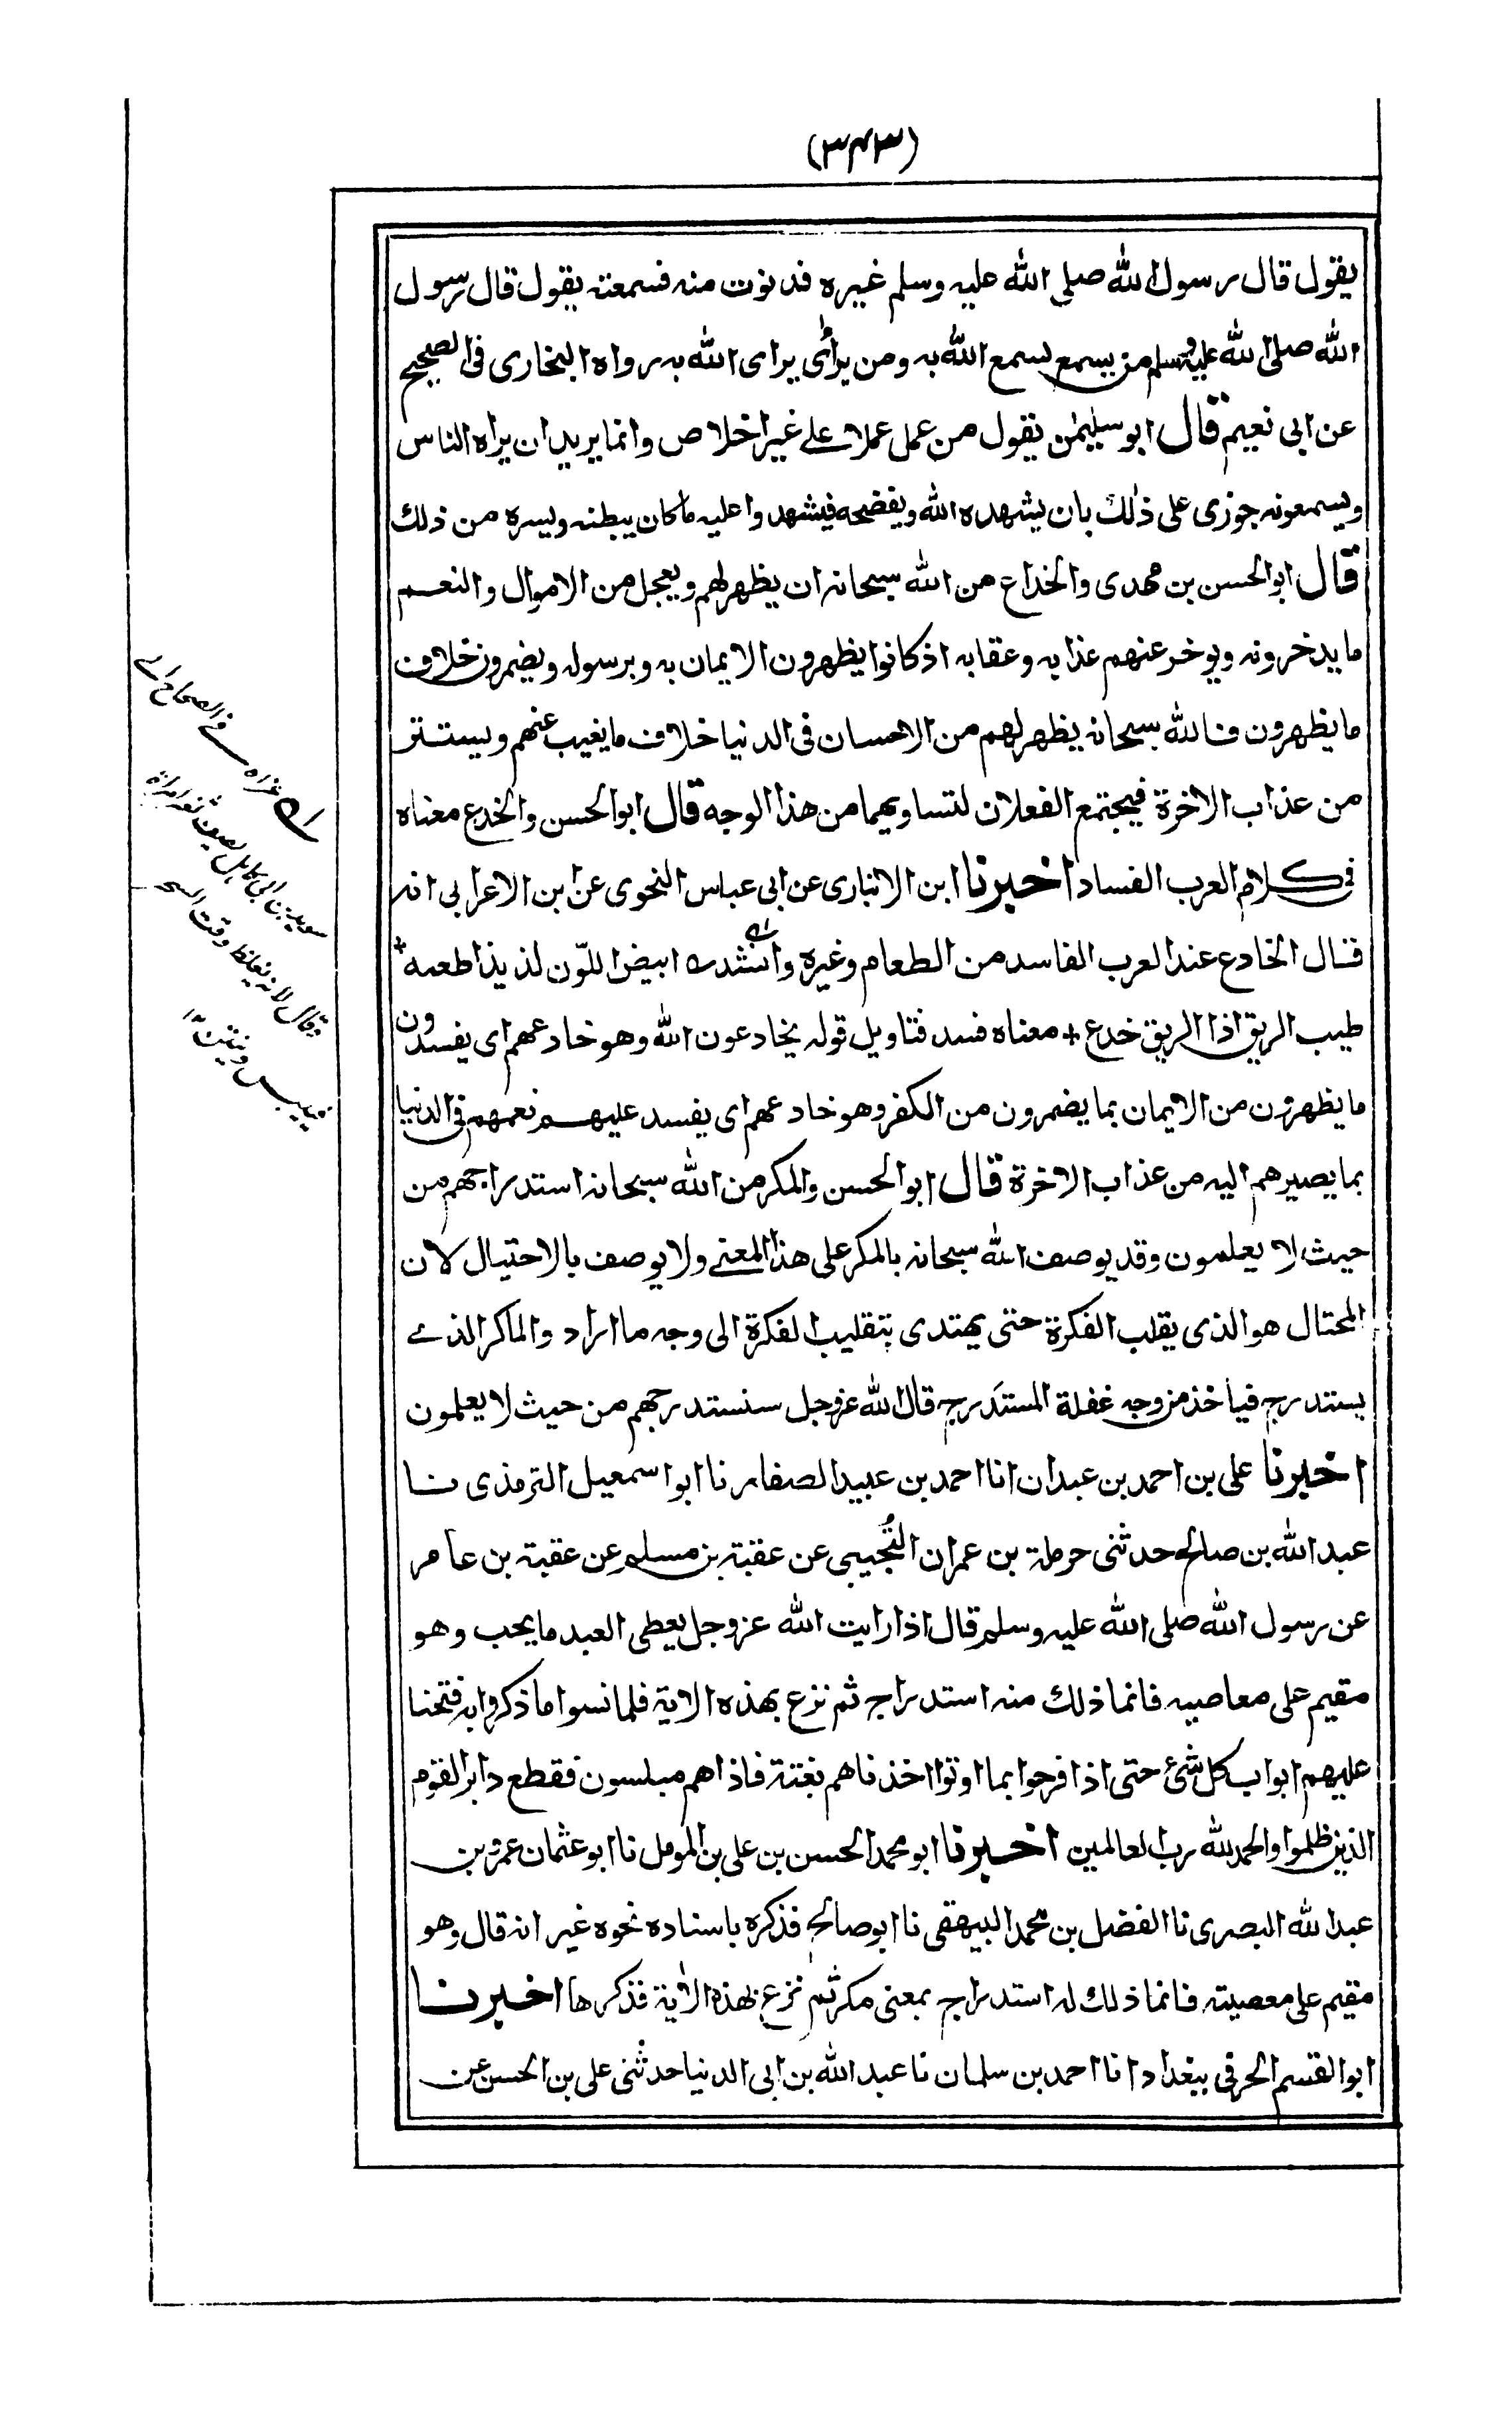 (٣٤٣)
يقول قال رسول الله صلى الله عليه وسلم غيره فدنوت منه فسمعته يقول قال رسول
الله صلى الله عليه وسلم من يسمع يسمع الله به ومن يرأى يراى الله به رواه البخارى فى الصحيح
عن ابى نعيم قال ابو سليمٰن يقول من عمل عملا على غير اخلاص وانما يريد ان يراه الناس
ويسمعونه جوزى على ذٰلك بان يشهده الله ويفضحه فيشهدوا عليه ما كان يبطنه ويسره من ذلك
قال ابو الحسن بن مهدى والخداع من الله سبحانه ان يظهر لهم ويعجل من الاموال والنعم
ما يدخرونه ويوخر عنهم عذابه وعقابه اذ كانوا يظهرون الايمان به وبرسوله ويضمرون خلاف
ما يظهرون فالله سبحانه يظهر لهم من الاحسان فى الدنيا خلاف ما يغيب عنهم ويستتر
من عذاب الاخرة فيجتمع الفعلان لتساويهما من هذا الوجه قال ابو الحسن والخدع معناه
فى كلام العرب الفساد اخبرنا ابن الانبارى عن ابى عباس النحوى عن ابن الاعرابى انه
قال الخادع عند العرب الفاسد من الطعام وغيره وانشد ابيض اللّون لذيذا طعمه +
طيب الريق اذا الريق خدع + معناه فسد فتاويل قوله يخادعون الله وهو خادعهم اى يفسدون
ما يظهرون من الايمان بما يضمرون من الكفر وهو خادعهم اى يفسد عليهم نعمهم فى الدنيا
بما يصيرهم اليه من عذاب الاخرة قال ابو الحسن والمكر من الله سبحانه استدراجهم من
حيث لا يعلمون وقد يوصف الله سبحانه بالمكر على هذا المعنى ولا يوصف بالاحتيال لان
المحتال هو الذى يقلب الفكرة حتى يهتدى بتقليب الفكرة الى وجه ما اراد والماكر الذى
يستدرج فيأخذ من وجه غفلة المستدرج قال الله عز وجل سنستدرجهم من حيث لا يعلمون
اخبرنا على بن احمد بن عبدان انا احمد بن عبيد الصفار نا ابو اسمعيل الترمذى نا
عبد الله بن صالح حدثنى حرملة بن عمران التُجيبى عن عقبة بن مسلم عن عقبة بن عامر
عن رسول الله صلى الله عليه وسلم قال اذا رايت الله عز وجل يعطى العبد ما يحب وهو
مقيم على معاصيه فانما ذلك منه استدراج ثم نزع بهذه الاية فلما نسوا ما ذكروا به فتحنا
عليهم ابواب كل شئ حتى اذا فرحوا بما اوتوا اخذناهم بغتة فاذا هم مبلسون فقطع دابر القوم
الذين ظلموا والحمد لله رب العالمين اخبرنا ابو محمد الحسن بن على بن المومل نا ابو عثمان عمرو بن
عبد الله البصرى نا الفضل بن محمد البيهقى نا ابو صالح فذكره باسناده نحوه غير انه قال وهو
مقيم على معصيته فانما ذلك له استدراج بمعنى مكر ثم نزع بهذه الاٰية فذكرها اخبرنا
ابو القسم الحرفى ببغداد انا احمد بن سلمان نا عبد الله بن ابى الدنيا حدثنى على بن الحسن عن
عزاه فى الصحاح الى
سويد بن ابى كاهل يصف ثغر امراة
وقال لانه يغلظ وقت السحر
فييبس وينتن ١٢